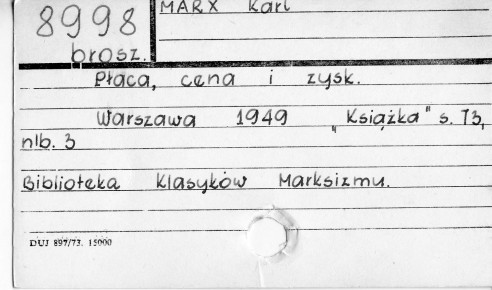 8998
brosz.
MARX Karl
Płaca, cena i zysk.
Warszawa 1949 „Książka" s. 73,
nlb. 3
Biblioteka Klasyków Marksizmu.
DUJ 897/73. 15000